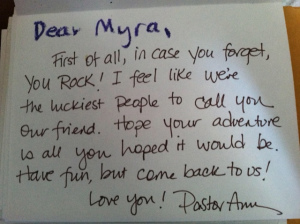 Dear Myra,
First of all, in case you forget,
You ROCK! I feel like we're
the luckiest people to call you
our friend. Hope your adventure
is all you hoped it would be.
Have fun, but come back to us!
Love you! Pastor Ann